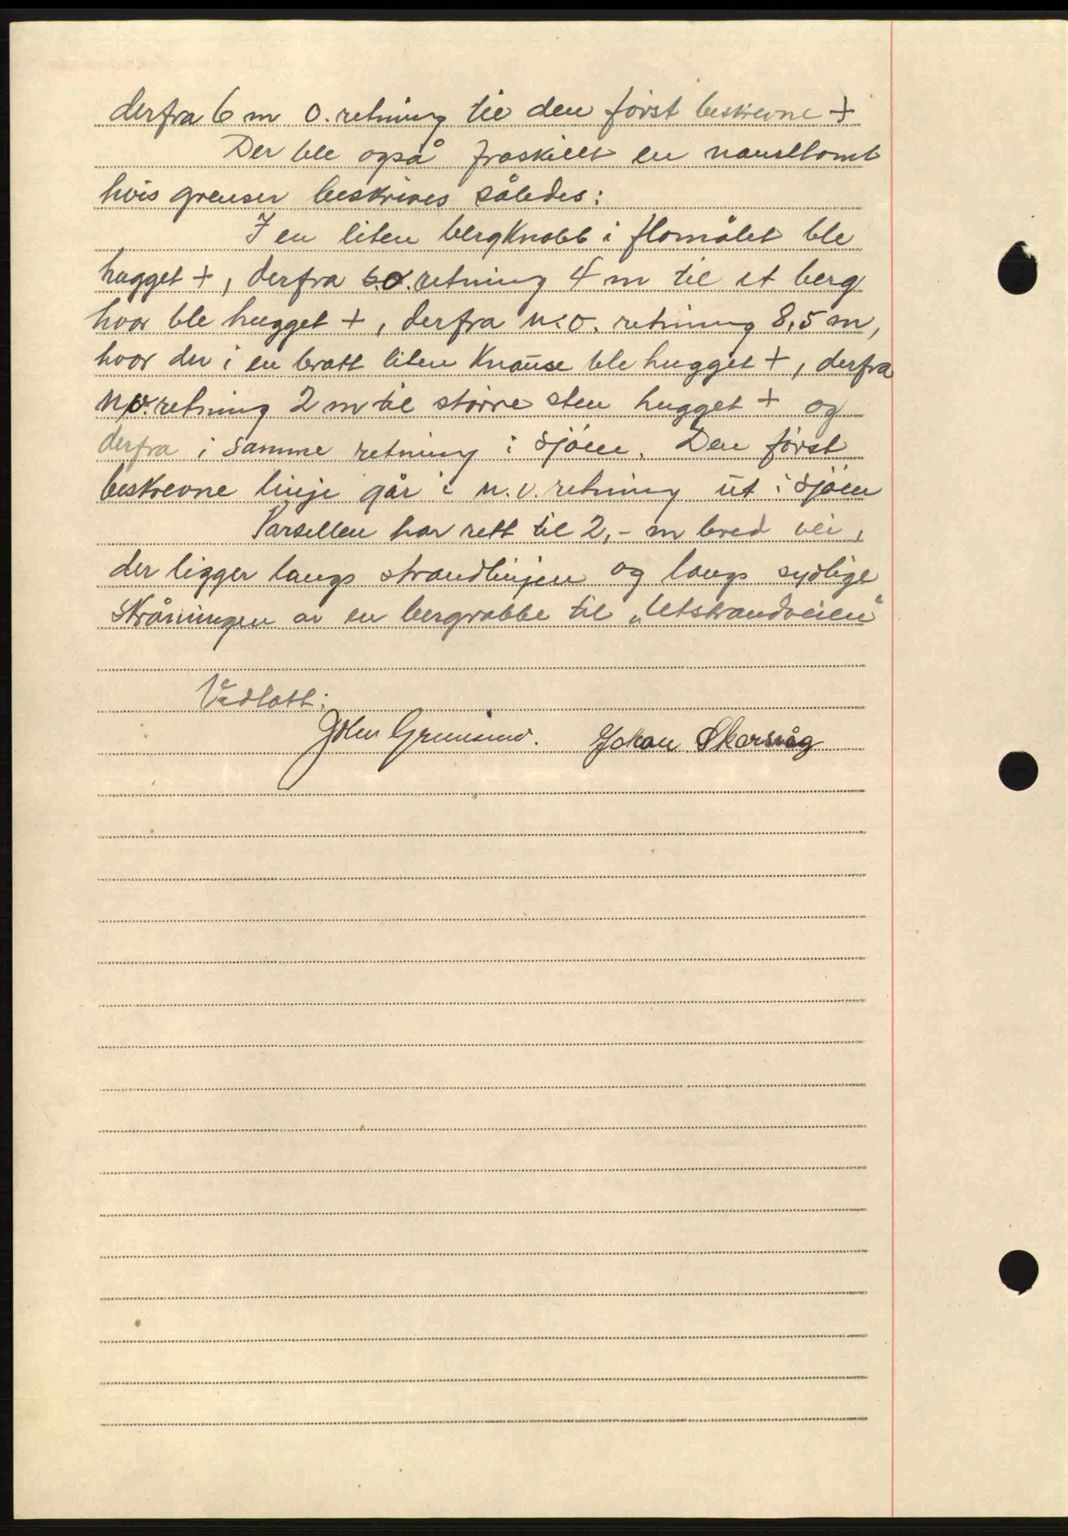 derfra 6 m o. retning til den først beskrevne +
Der ble også fraskillt en nausttomt
hvis grenser beskrives således:
I en liten bergknobb i flomålet ble
hugget +, derfra s.o. retning 4 m til et berg
hvor ble hugget +, derfra n.o. retning 8,5 m,
hvor der i en bratt liten knause ble hugget +, derfra
n.v. retning 2 m til større sten hugget + og
derfra i samme retning i sjøen. Den først
beskrevne linje går i n.v. retning ut i sjøen
Parsellen har rett til 2,- m bred vei,
der ligger langs strandlinjen og langs sydlige
skråningen av en bergrabbe til „Utstrandveien"
Vedtatt:
John Johan Skarsvåg